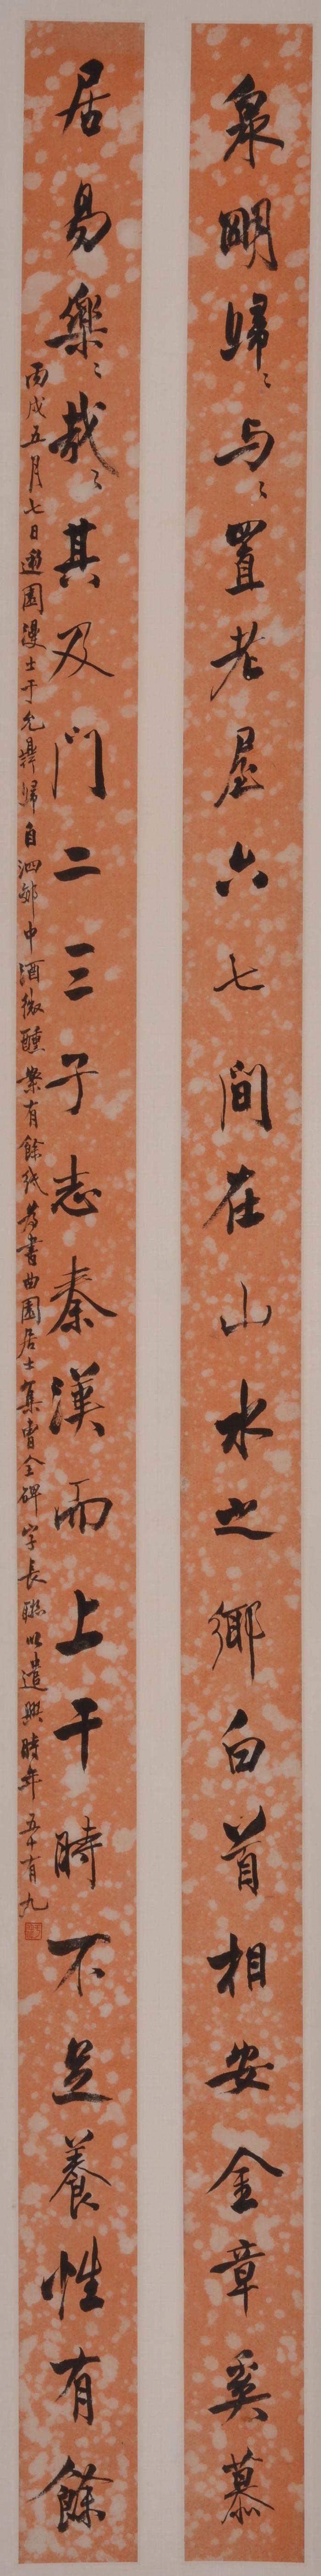 泉明歸〻与〻置老屋六七間在山水之鄉白首相安金章奚慕
居易樂〻哉〻其及門二三子志秦漢而上干時不足養性有餘
丙戌五月七日遯園漫士于允鼎歸自泗郊中酒微醺案有餘紙為書曲園居士集曹全碑字長聯以遣興時年五十有九